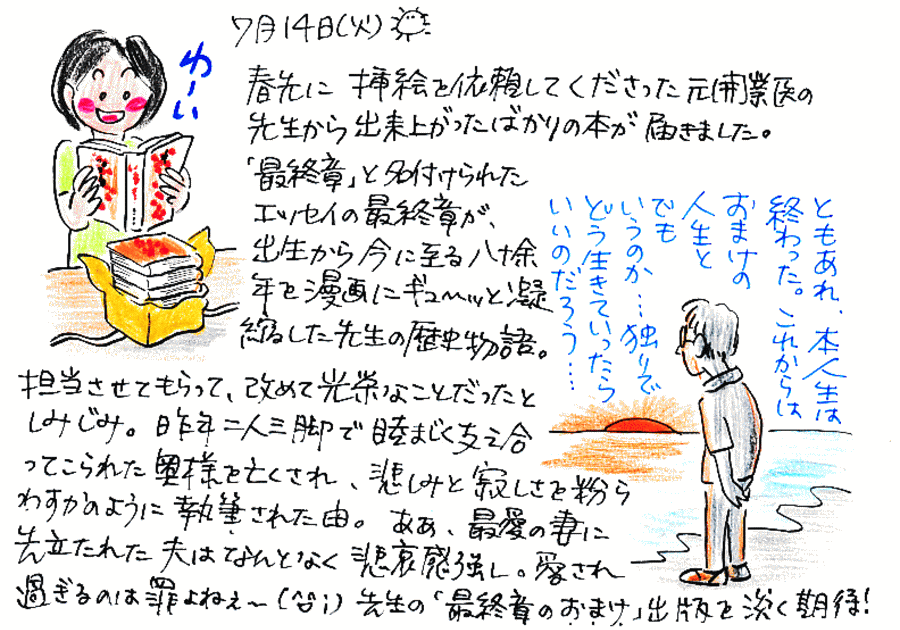 7月14日(火)
わーい
春先に 挿絵を依頼してくださった元開業医の
先生から出来上がったばかりの本が届きました。
「最終章」と名付けられた
エッセイの最終章が、
出生から今に至る八十余
年を漫画にギュ〜ッと凝
縮した先生の歴史物語。
担当させてもらって、改めて光栄なことだったと
しみじみ。昨年二人三脚で睦まじく支え合
ってこられた奥様を亡くされ、悲しみと寂しさを紛ら
わすかのように執筆された由。ああ、最愛の妻に
先立たれた夫はなんとなく悲哀感強し。愛され
過ぎるのは罪よねぇ〜(^^;) 先生の「最終章のおまけ」出版を淡く期待!
ともあれ、本人生は
終わった。これからは
おまけの
人生と
でも
いうのか…独りで
どう生きていったら
いいのだろう…